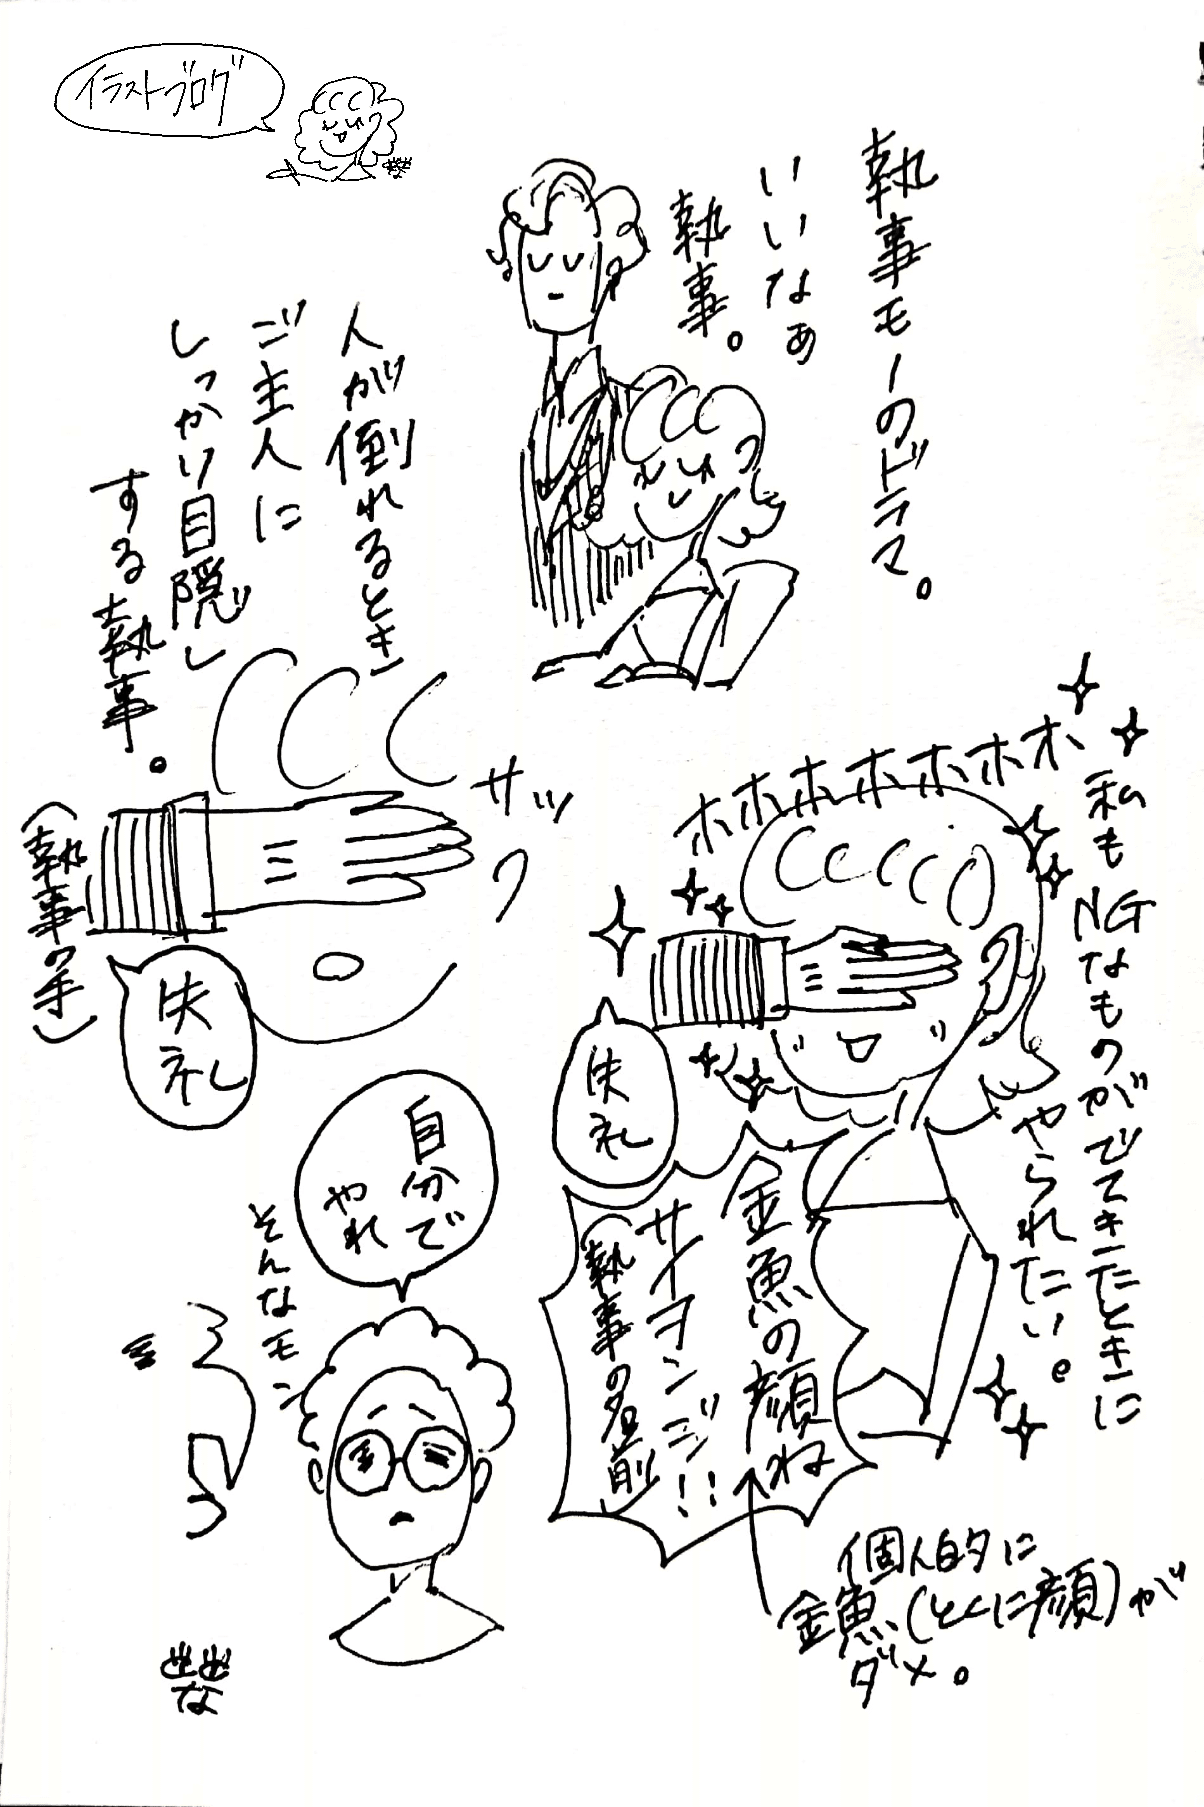 イラストブログ
執事モーのドラマ。
いいなぁ
執事。
人が倒れるとき
ご主人に
しっかり目隠し
する執事。
サッ
(執事の手)
失礼
ホホホホホホホ
私もNGなものがでてきたときに
やられたい。
失礼
金魚の顔ね
サイヲンジ!!
(執事の名前
個人的に
金魚(とくに顔)が
ダメ。
自分で
やれ
そんなモン